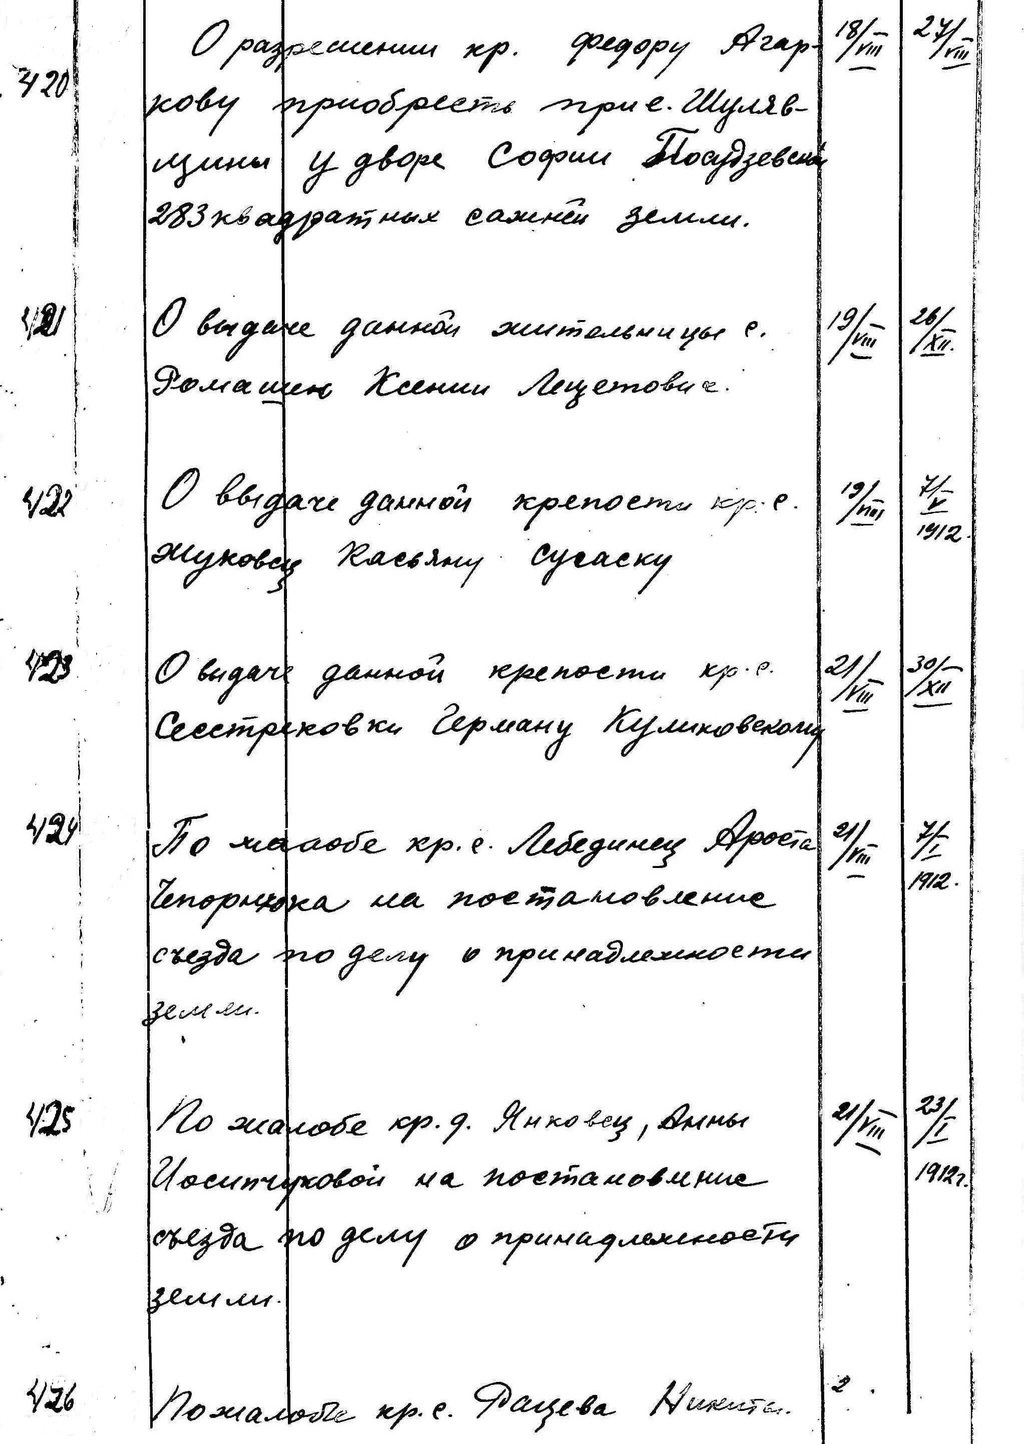 О разрешении кр. Федору Агар- 18/VIII 27/VIII
420
кову приобресть при с. Шуляв-
щины у дворе Софии Посудзевской
283 квадратных сажней земли.
421 О выдаче данной жительницы с. 19/VIII 26/XII.
Ромашек Ксении Лещетович.
422 О ввыдаче данной крепости кр. с. 19/VIII 7/V
1912.
жуковец Касьяну Сусаску
423 О выдаче данной крепости кр. с. 21/VIII 30/XII
Сестриковки Герману Куликовскому
424 По жалобе кр. с. Лебединец Ароста 21/VIII 7/I
1912.
Чепорнюка на постановление
съезда по делу о принадлежности
земли.
425 По жалобе кр. д. Янковец, Анны 21/VIII 23/I
Иосипчуковой на постановление 1912г.
съезда по делу о принадлежности
земли.
426 По жалобе кр. с. Ращева Никиты. 2